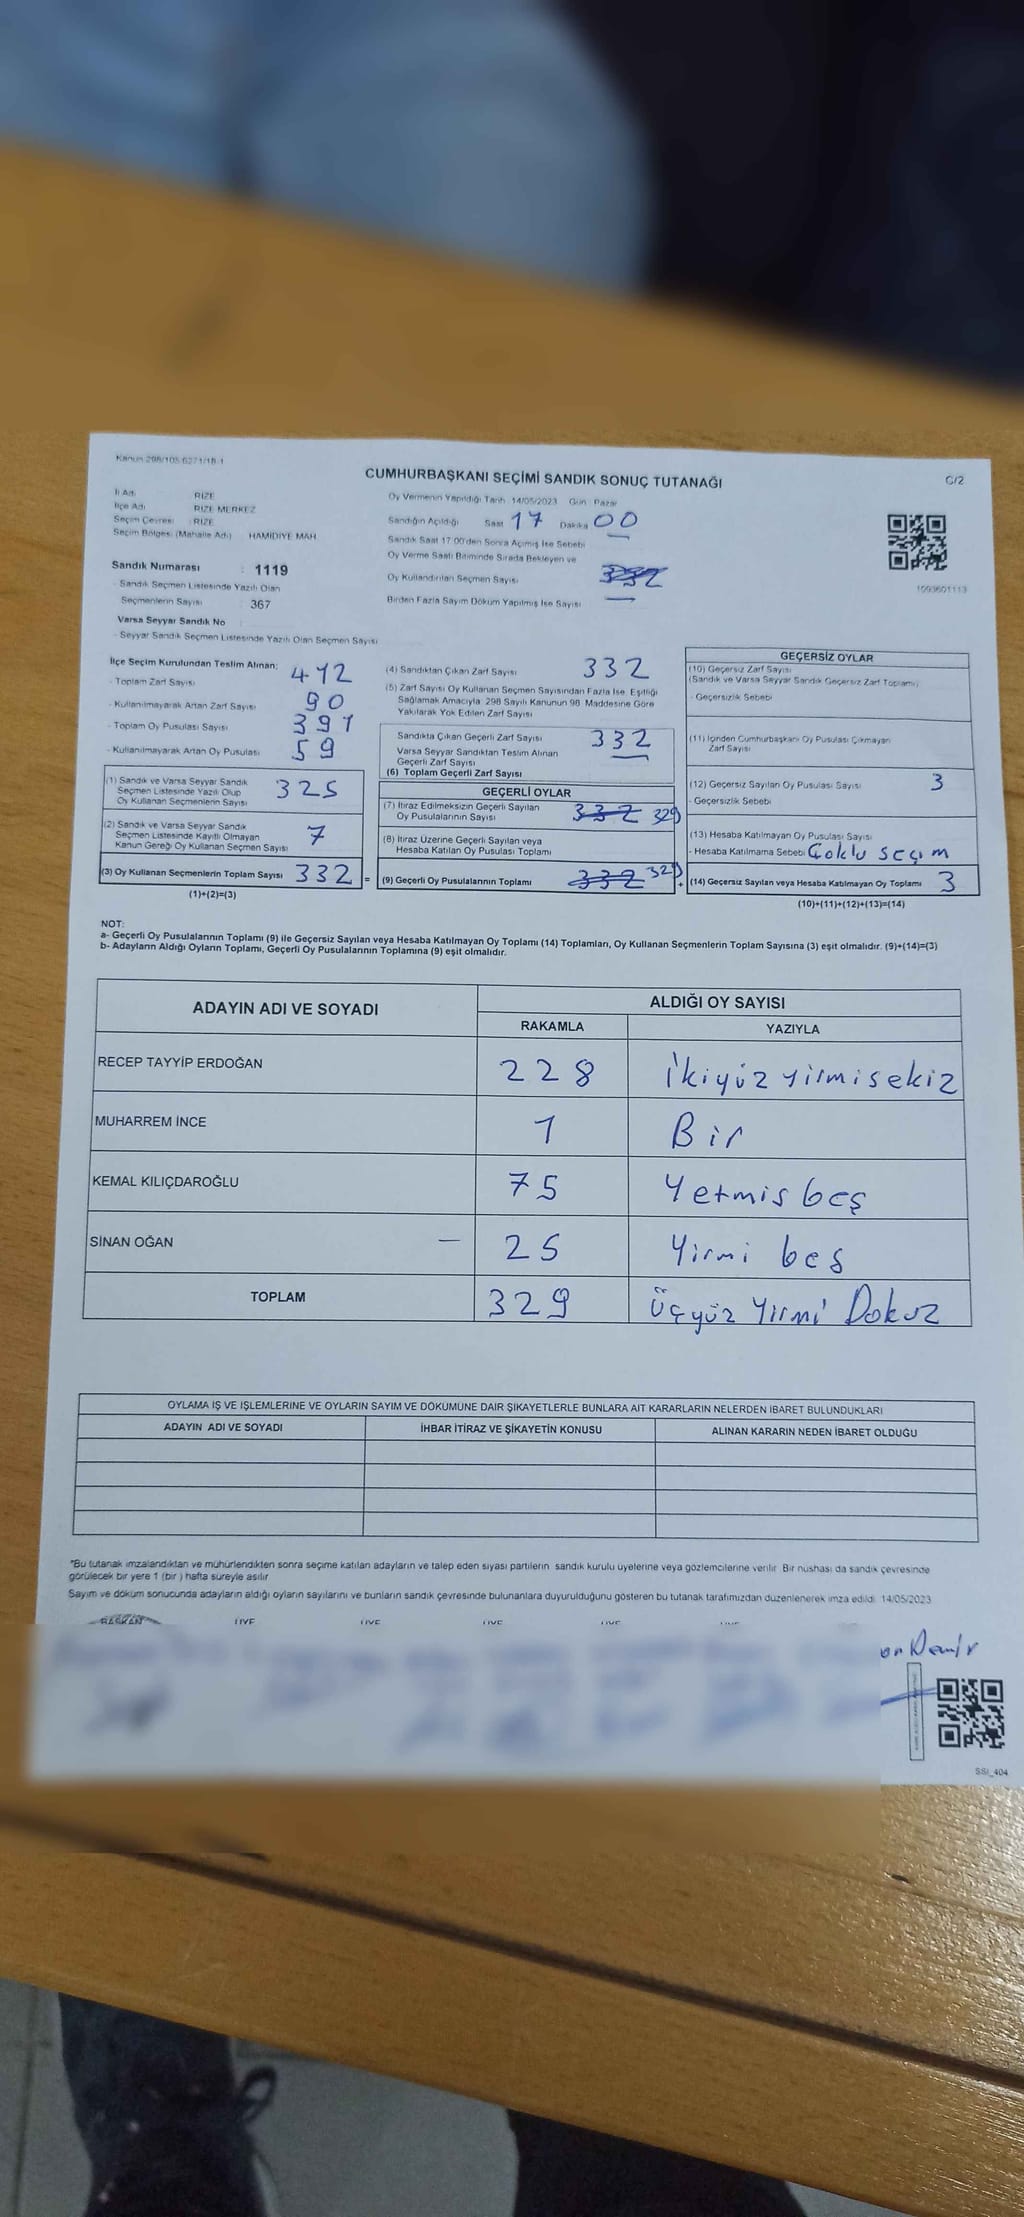 Kanun 298/105 6271/18-1
CUMHURBAŞKANI SEÇİMİ SANDIK SONUÇ TUTANAĞI
C/2
İl Adı RIZE
İlçe Adı RIZE MERKEZ
Seçim Çevresi RIZE
Seçim Bölgesi (Mahalle Adı) HAMIDIYE MAH.
Oy Vermenin Yapıldığı Tarih 14/05/2023 Gün Pazar
Sandığın Açıldığı Saat 17 Dakika 00
Sandık Saat 17.00'den Sonra Açımış İse Sebebi
Oy Verme Saati Bitiminde Sırada Bekleyen ve
Oy Kullandırılan Seçmen Sayısı
Birden Fazla Sayım Döküm Yapılmış İse Sayısı
1093601113
Sandık Numarası : 1119
- Sandık Seçmen Listesinde Yazılı Olan
Seçmenlerin Sayısı : 367
Varsa Seyyar Sandık No
- Seyyar Sandık Seçmen Listesinde Yazılı Olan Seçmen Sayısı
İlçe Seçim Kurulundan Teslim Alınan:
- Toplam Zarf Sayısı 412
- Kullanılmayarak Artan Zarf Sayısı 90
- Toplam Oy Pusulası Sayısı 391
- Kullanılmayarak Artan Oy Pusulası 59
(1) Sandık ve Varsa Seyyar Sandık
Seçmen Listesinde Yazılı Olup
Oy Kullanan Seçmenlerin Sayısı 325
(2) Sandık ve Varsa Seyyar Sandık
Seçmen Listesinde Kayıtlı Olmayan
Kanun Gereği Oy Kullanan Seçmen Sayısı 7
(3) Oy Kullanan Seçmenlerin Toplam Sayısı 332 =
(1)+(2)=(3)
(4) Sandıktan Çıkan Zarf Sayısı 332
(5) Zarf Sayısı Oy Kullanan Seçmen Sayısından Fazla İse, Eşitliği
Sağlamak Amacıyla 298 Sayılı Kanunun 98. Maddesine Göre
Yakılarak Yok Edilen Zarf Sayısı
Sandıkta Çıkan Geçerli Zarf Sayısı 332
Varsa Seyyar Sandıktan Teslim Alınan
Geçerli Zarf Sayısı
(6) Toplam Geçerli Zarf Sayısı
GEÇERLİ OYLAR
(7) İtiraz Edilmeksizin Geçerli Sayılan
Oy Pusulalarının Sayısı 332 329
(8) İtiraz Üzerine Geçerli Sayılan veya
Hesaba Katılan Oy Pusulası Toplamı
(9) Geçerli Oy Pusulalarının Toplamı 332 329 +
GEÇERSİZ OYLAR
(10) Geçersiz Zarf Sayısı
(Sandık ve Varsa Seyyar Sandık Geçersiz Zarf Toplamı)
- Geçersizlik Sebebi
(11) İçinden Cumhurbaşkanı Oy Pusulası Çıkmayan
Zarf Sayısı
(12) Geçersiz Sayılan Oy Pusulası Sayısı 3
- Geçersizlik Sebebi
(13) Hesaba Katılmayan Oy Pusulası Sayısı
- Hesaba Katılmama Sebebi Çoklu seçim
(14) Geçersiz Sayılan veya Hesaba Katılmayan Oy Toplamı 3
(10)+(11)+(12)+(13)=(14)
NOT:
a- Geçerli Oy Pusulalarının Toplamı (9) ile Geçersiz Sayılan veya Hesaba Katılmayan Oy Toplamı (14) Toplamları, Oy Kullanan Seçmenlerin Toplam Sayısına (3) eşit olmalıdır. (9)+(14)=(3)
b- Adayların Aldığı Oyların Toplamı, Geçerli Oy Pusulalarının Toplamına (9) eşit olmalıdır.
ADAYIN ADI VE SOYADI
ALDIĞI OY SAYISI
RAKAMLA YAZIYLA
RECEP TAYYİP ERDOĞAN 228 ikiyüz yirmisekiz
MUHARREM İNCE 1 Bir
KEMAL KILIÇDAROĞLU 75 Yetmis beş
SİNAN OĞAN — 25 Yirmi beş
TOPLAM 329 üçyüz Yirmi Dokuz
OYLAMA İŞ VE İŞLEMLERİNE VE OYLARIN SAYIM VE DÖKÜMÜNE DAİR ŞİKAYETLERLE BUNLARA AİT KARARLARIN NELERDEN İBARET BULUNDUKLARI
ADAYIN ADI VE SOYADI İHBAR İTİRAZ VE ŞİKAYETİN KONUSU ALINAN KARARIN NEDEN İBARET OLDUĞU
*Bu tutanak imzalandıktan ve mühürlendikten sonra seçime katılan adayların ve talep eden siyasi partilerin sandık kurulu üyelerine veya gözlemcilerine verilir. Bir nüshası da sandık çevresinde
görülecek bir yere 1 (bir ) hafta süreyle asılır.
Sayım ve döküm sonucunda adayların aldığı oyların sayılarını ve bunların sandık çevresinde bulunanlara duyurulduğunu gösteren bu tutanak tarafımızdan düzenlenerek imza edildi. 14/05/2023
BAŞKAN ÜYE ÜYE ÜYE ÜYE
Demir
SSI_404